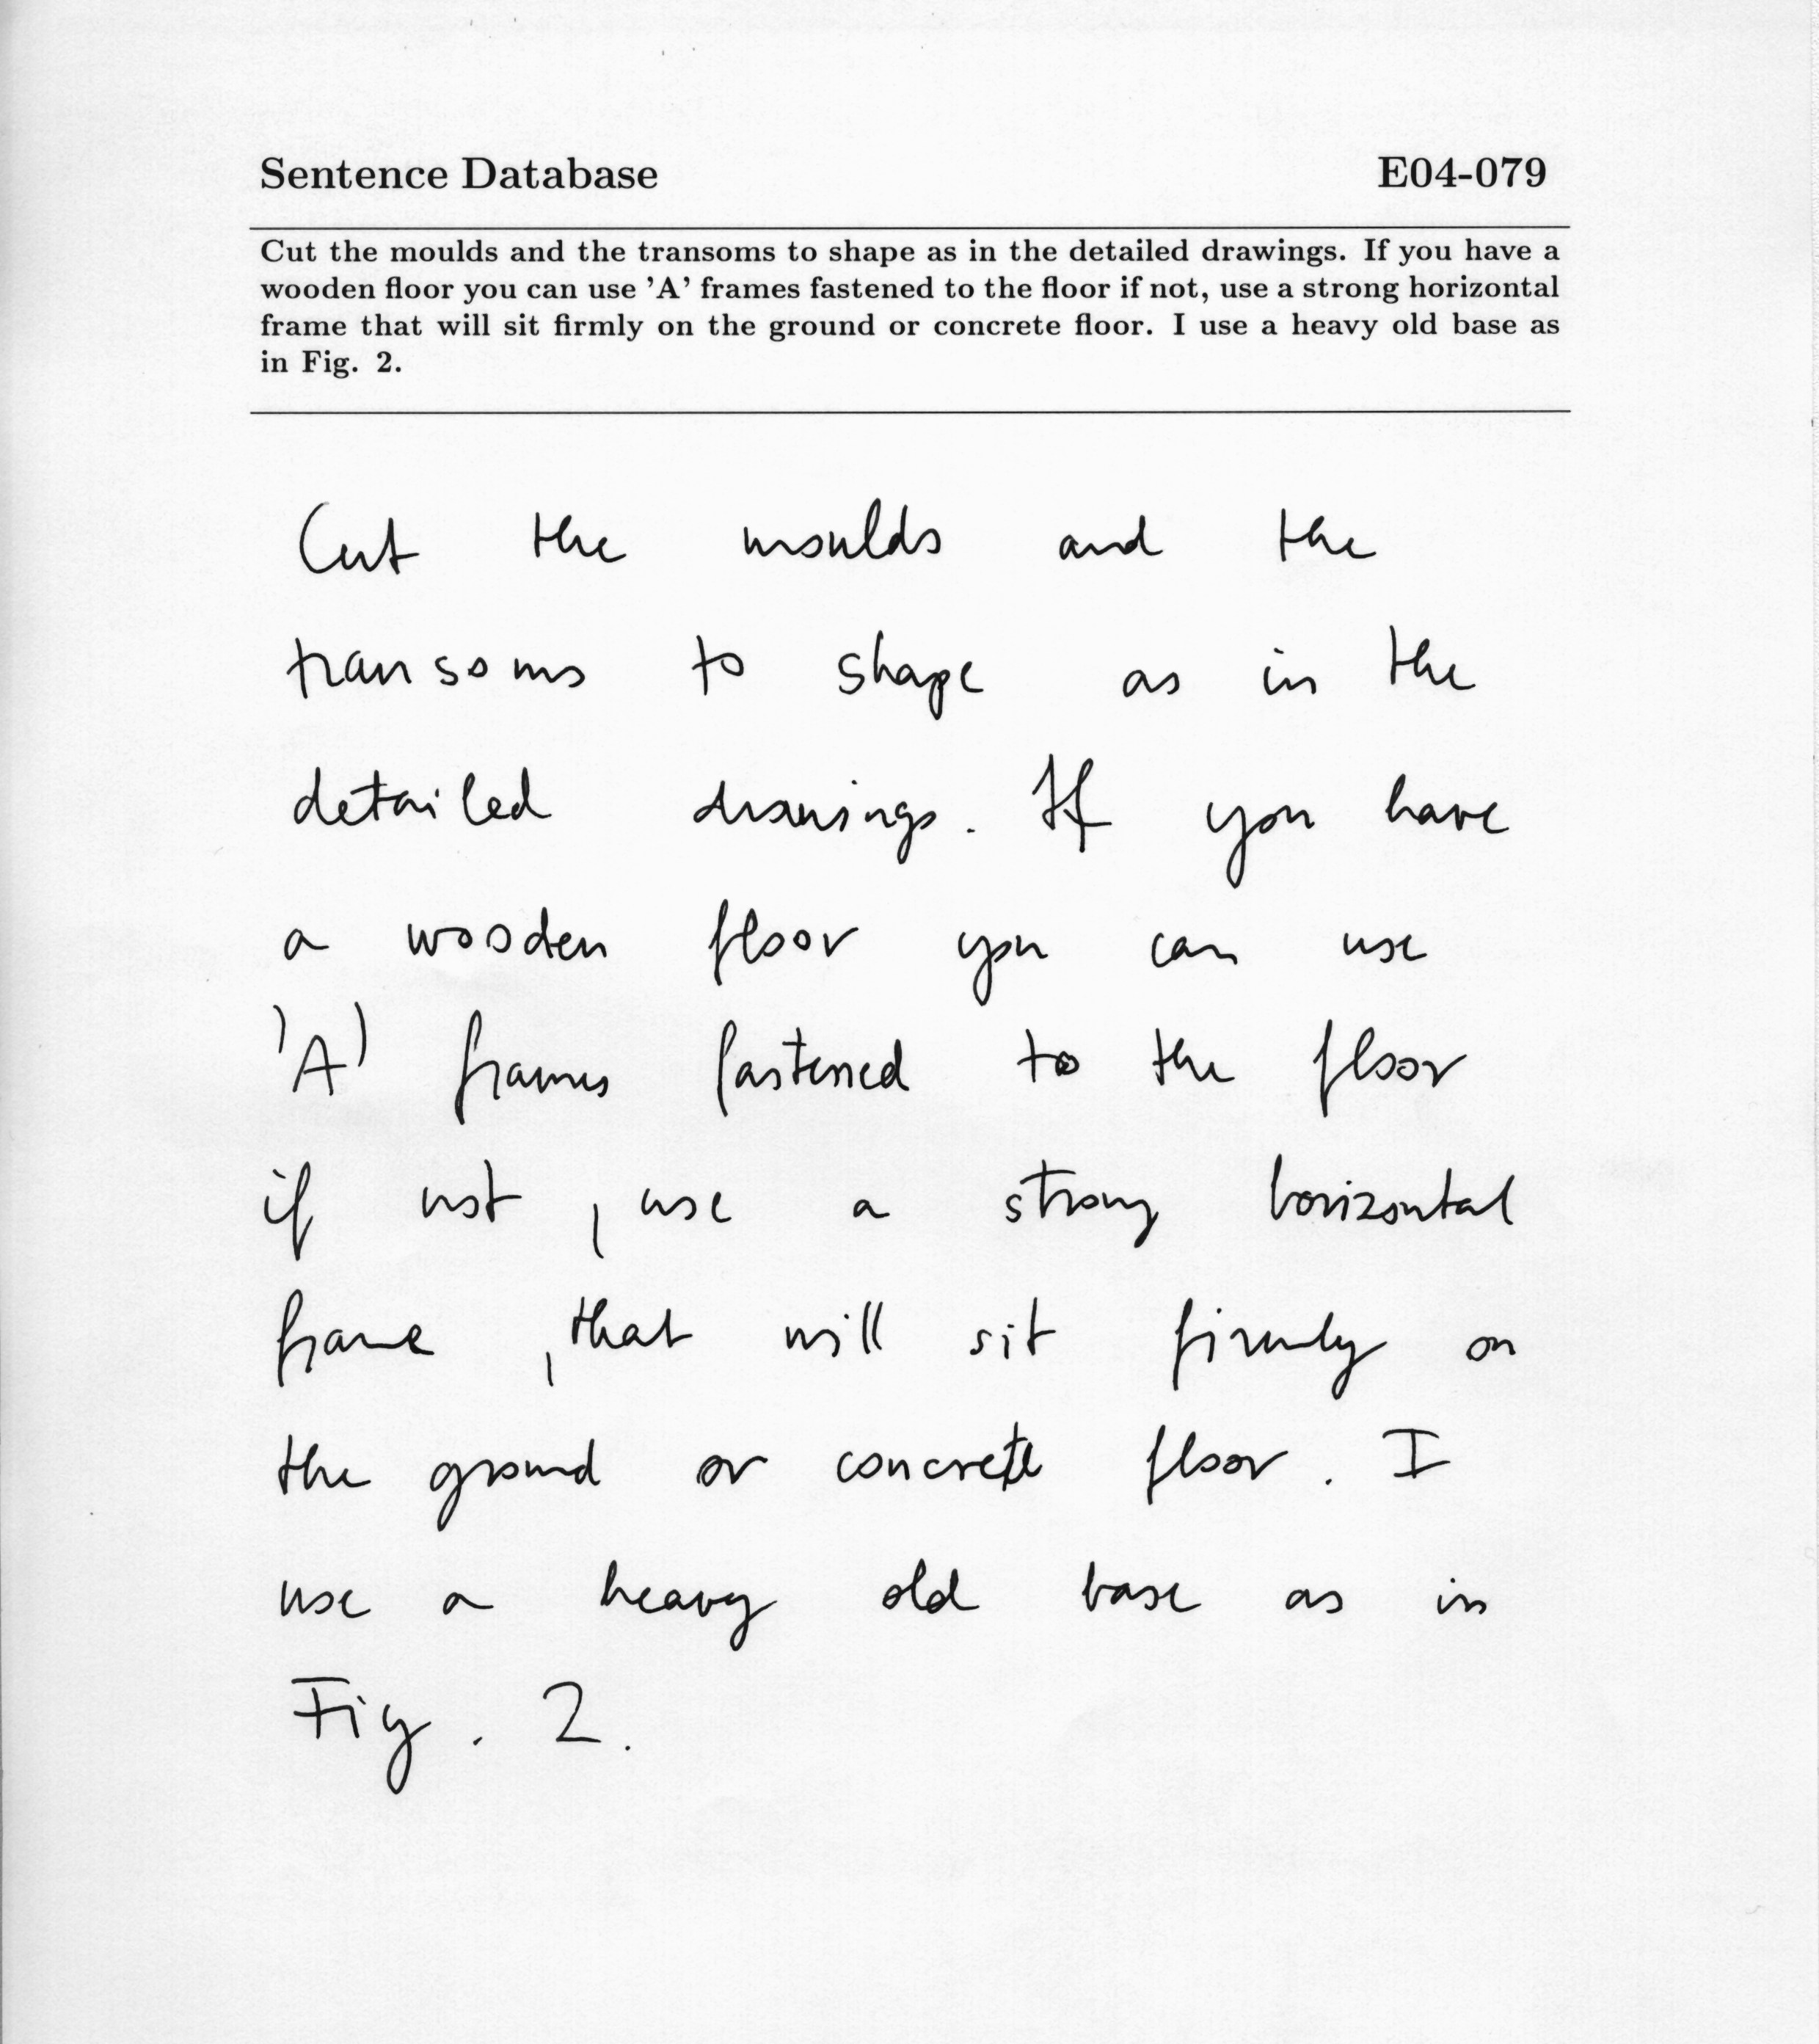 Sentence Database E04-079
Cut the moulds and the transoms to shape as in the detailed drawings. If you have a
wooden floor you can use 'A' frames fastened to the floor if not, use a strong horizontal
frame that will sit firmly on the ground or concrete floor. I use a heavy old base as
in Fig. 2.
Cut the moulds and the
transoms to shape as in the
detailed drawings. If you have
a wooden floor you can use
'A' frames fastened to the floor
if not, use a strong horizontal
frame, that will sit firmly on
the ground or concrete floor. I
use a heavy old base as in
Fig. 2.